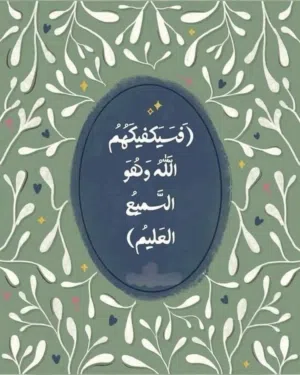 (فَسَيَكْفِيكَهُمُ
اللَّهُ وَهُوَ
السَّمِيعُ
العَلِيمُ)